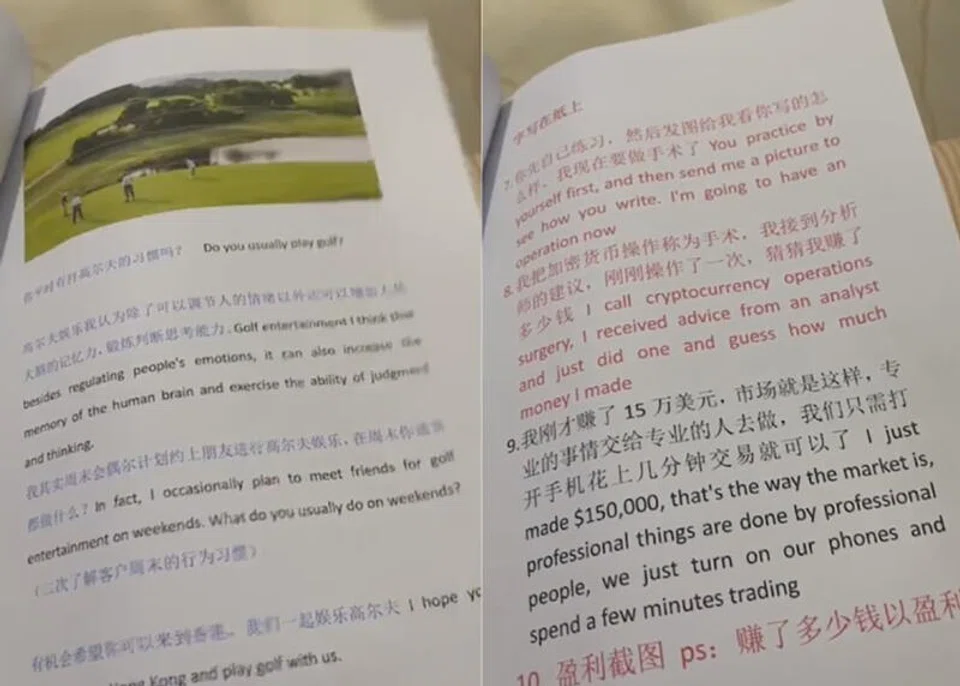 你平时有打高尔夫的习惯吗? Do you usually play golf?
高尔夫娱乐我认为除了可以调节人的情绪以外还可以增加人体
大脑的记忆力，锻炼判断思考能力。Golf entertainment I think that
besides regulating people's emotions, it can also increase the
memory of the human brain and exercise the ability of judgment
and thinking.
我其实周末会偶尔计划约上朋友进行高尔夫娱乐，在周末你通常
都做什么? In fact, I occasionally plan to meet friends for golf
entertainment on weekends. What do you usually do on weekends?
(二次了解客户周末的行为习惯)
有机会希望你可以来到香港，我们一起娱乐高尔夫 I hope yo
Hong Kong and play golf with us.
字写在纸上
7.你先自己练习，然后发图给我看你写的怎
么样，我现在要做手术了 You practice by
yourself first, and then send me a picture to
see how you write. I'm going to have an
operation now
8.我把加密货币操作称为手术，我接到分析
师的建议，刚刚操作了一次，猜猜我赚了
多少钱 I call cryptocurrency operations
surgery, I received advice from an analyst
and just did one and guess how much
money I made
9.我刚才赚了 15 万美元，市场就是这样，专
业的事情交给专业的人去做，我们只需打
开手机花上几分钟交易就可以了 I just
made $150,000, that's the way the market is,
professional things are done by professional
people, we just turn on our phones and
spend a few minutes trading
10.盈利截图 ps: 赚了多少钱以盈利